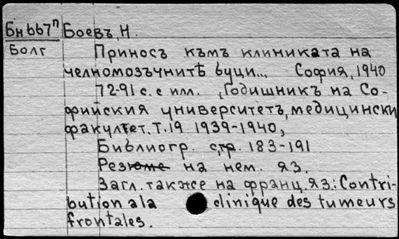 Бнbb7п Боевъ, Н.
Болг
Приносъ къмъ клиниката на
челномозъчнитѣ вуци... София, 1940
72-91 с. с илл. „Годишникъ на Со-
фийския университетъ, медицински
факултет. Т. 19 1939-1940,
Библиогр. стр. 183-191
Резюме на нем. яз.
Загл. также на франц. яз: Contri-
bution a la clinique des tumeurs
frontales.